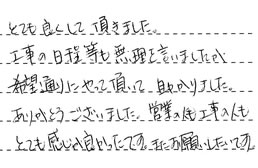 とても良くして頂きました。
工事の日程等も無理を言いましたが
希望通りにやって頂いて助かりました。
ありがとうございました。営業さんも工事さんも
とても感じが良かったです。またお願いしたいです。